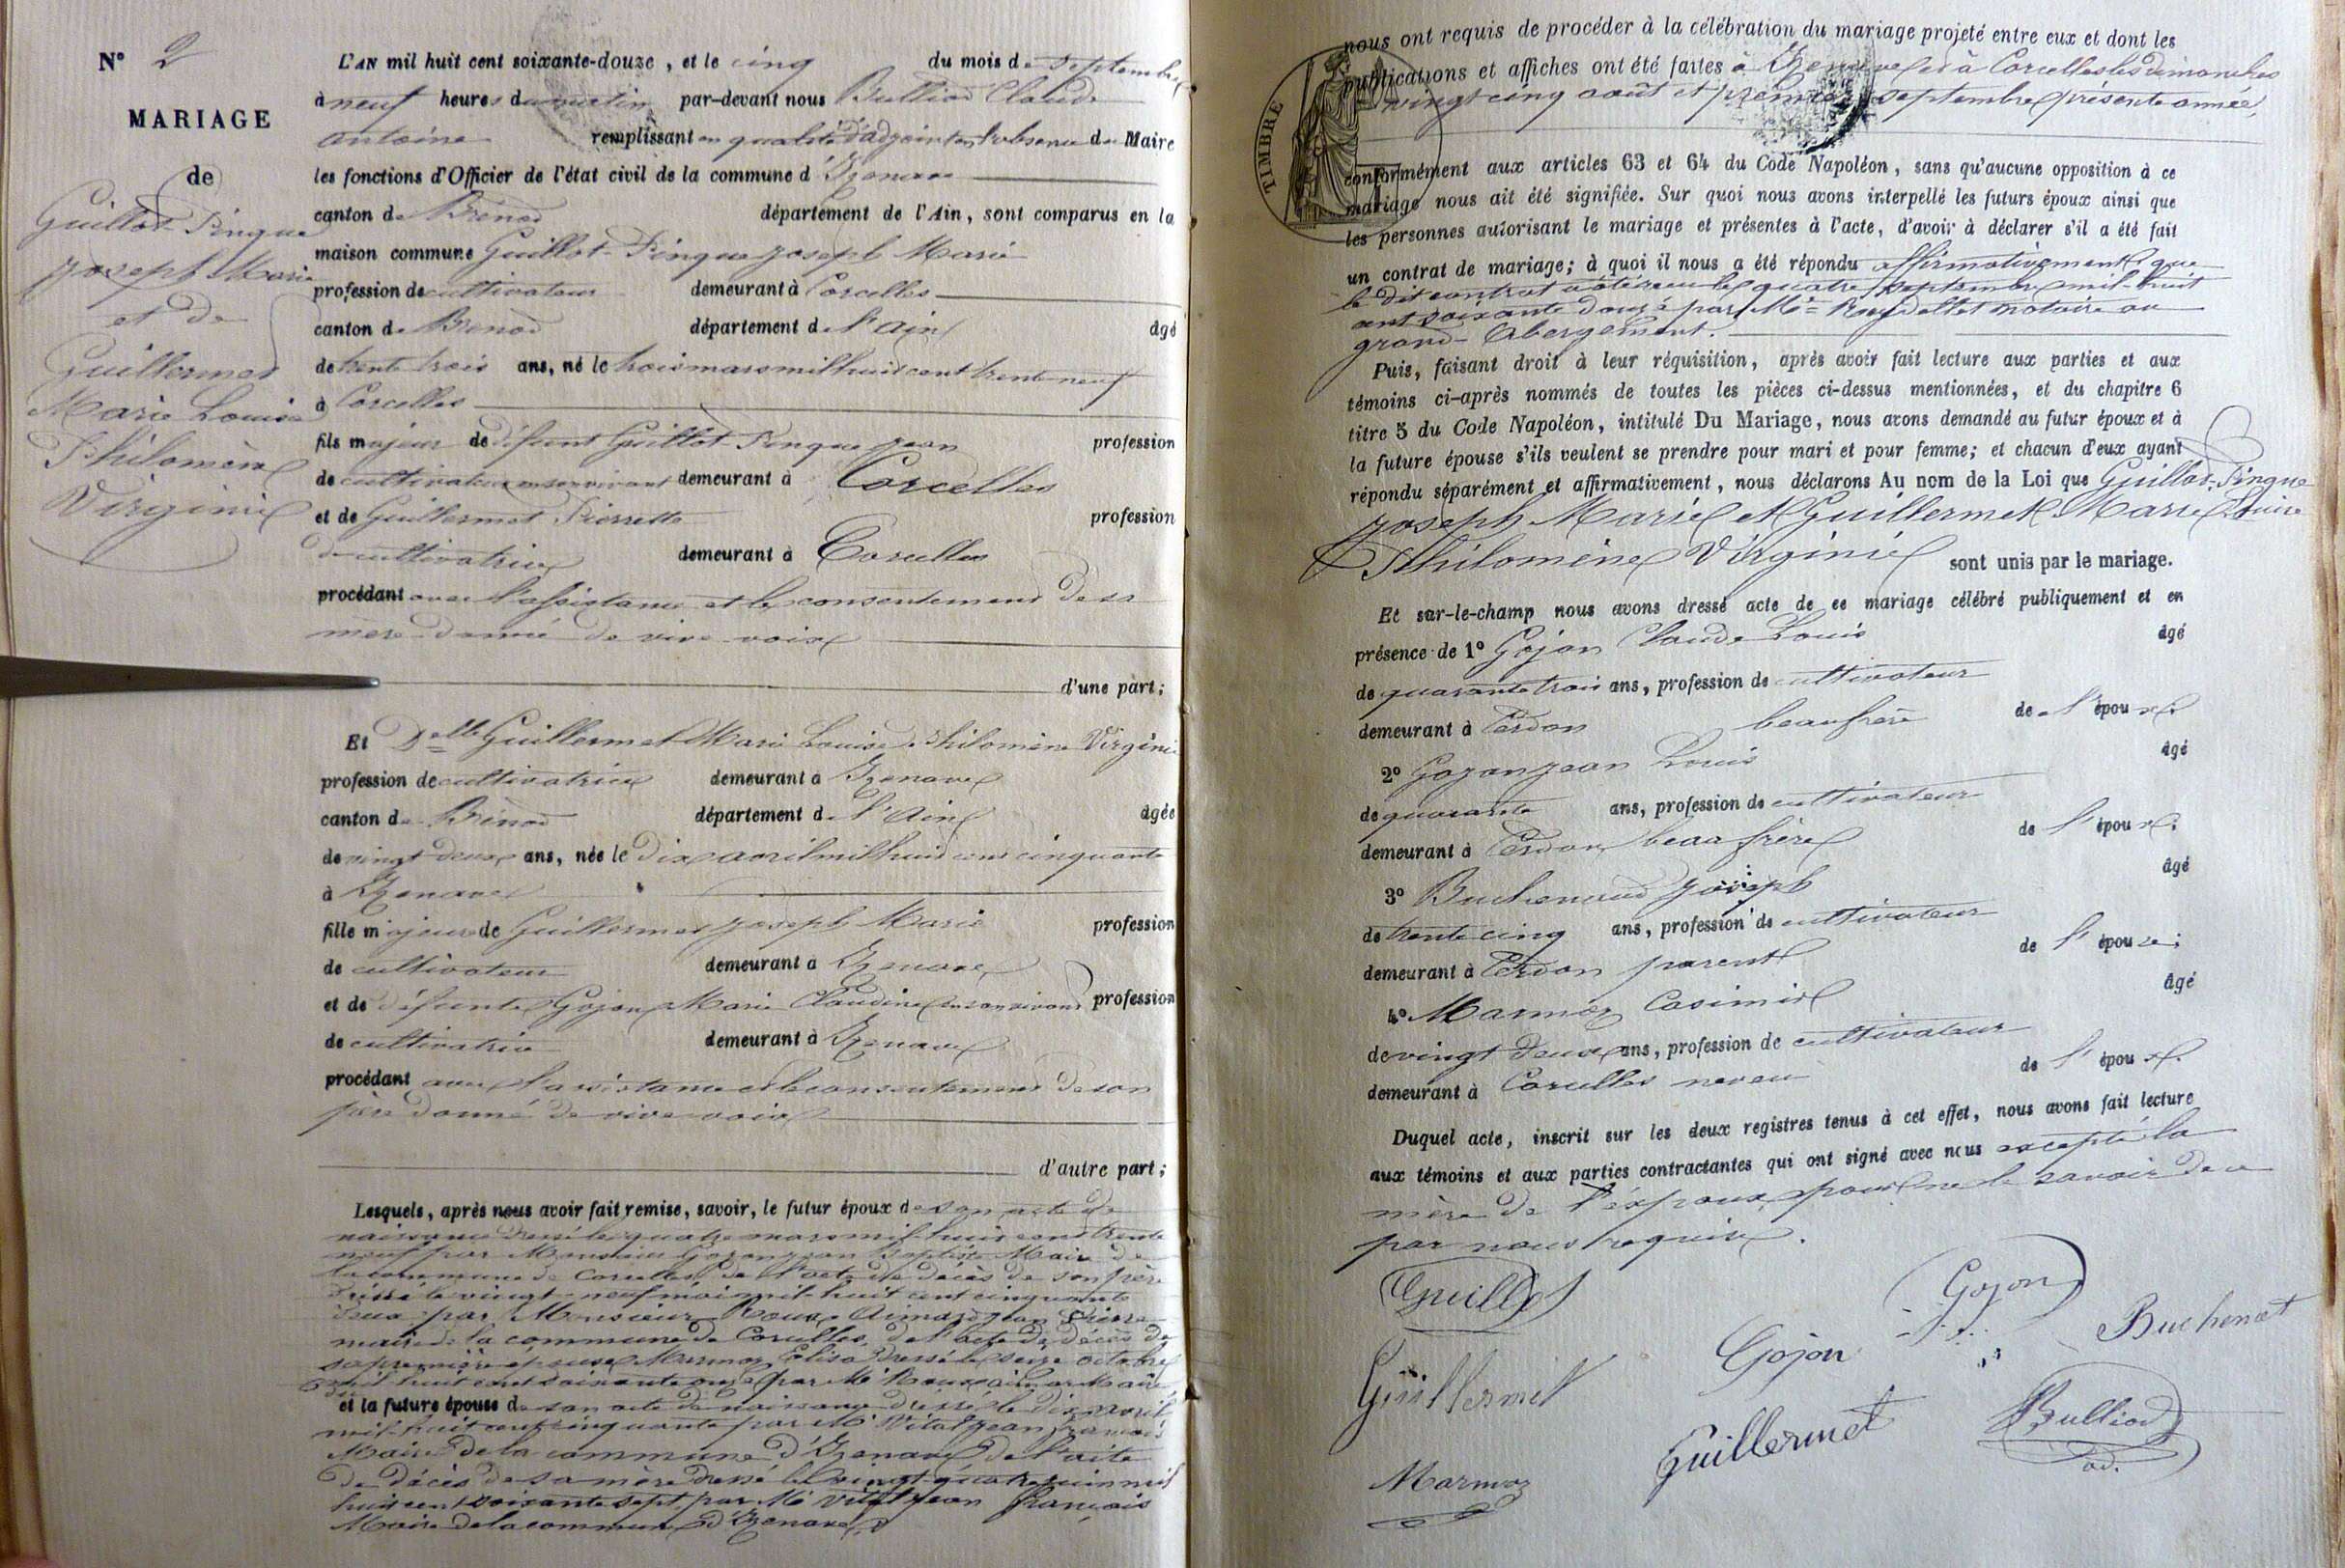 N° 2
MARIAGE
de
Guillot-Pingue
Joseph Marie
et de
Guillermet
Marie Louise
Philomène
Virginie
L'AN mil huit cent soixante-douze, et le cinq du mois de septembre
à neuf heures du matin par-devant nous Bulliod Claude
antoine remplissant en qualité d'adjoint en l'absence du Maire
les fonctions d'Officier de l'état civil de la commune d'Izenave
canton de Brénod département de l'Ain, sont comparus en la
maison commune Guillot-Pingue Joseph Marie
profession de cultivateur demeurant à Corcelles
canton de Brénod département de l'Ain âgé
de trente trois ans, né le trois mars mil huit cent trente neuf
à Corcelles
fils majeur de défunt Guillot Pingue Jean profession
de cultivateur en son vivant demeurant à Corcelles
et de Guillermet Pierrette profession
de cultivatrice demeurant à Corcelles
procédant avec l'assistance et le consentement de sa
mère donné de vive voix
d'une part;
Et Delle Guillermet Marie Louise Philomène Virginie
profession de cultivatrice demeurant à Izenave
canton de Brénod département de l'Ain âgée
de vingt deux ans, née le dix avril mil huit cent cinquante
à Izenave
fille majeure de Guillermet Joseph Marie profession
de cultivateur demeurant à Izenave
et de défunte Gojon Marie Claudine en son vivant profession
de cultivatrice demeurant à Izenave
procédant avec l'assistance et le consentement de son
père donné de vive voix
d'autre part;
Lesquels, après nous avoir fait remise, savoir, le futur époux de son acte de
naissance dressé le quatre mars mil huit cent trente
neuf par Monsieur Baptiste Maire de
la commune de Corcelles, de l'acte de décès de son père
dressé le vingt-neuf mai mil huit cent cinquante
deux par Monsieur Roux Aimard Jean Pierre
maire de la commune de Corcelles, de l'acte de décès de
sa première épouse Marmoz Elisa dressé le seize octobre
mil huit cent soixante onze par Mr Roux aimar Maire
et la future épouse de son acte de naissance dressé le dix avril
mil huit cent cinquante par Mr Vital Jean François
Maire de la commune d'Izenave, de l'acte
de décès de sa mère dressé le vingt-quatre juin mil
huit cent soixante sept par Mr Vital Jean François
Maire de la commune d'Izenave
TIMBRE
nous ont requis de procéder à la célébration du mariage projeté entre eux et dont les
publications et affiches ont été faites à Izenave et à Corcelles les dimanches
vingt cinq août et premier septembre présente année,
conformément aux articles 63 et 64 du Code Napoléon, sans qu'aucune opposition à ce
mariage nous ait été signifiée. Sur quoi nous avons interpellé les futurs époux ainsi que
les personnes autorisant le mariage et présentes à l'acte, d'avoir à déclarer s'il a été fait
un contrat de mariage; à quoi il nous a été répondu affirmativement que
le dit contrat a été reçu le quatre septembre mil huit
cent soixante douze par Me notaire au
grand-Abergement.
Puis, faisant droit à leur réquisition, après avoir fait lecture aux parties et aux
témoins ci-après nommés de toutes les pièces ci-dessus mentionnées, et du chapitre 6
titre 5 du Code Napoléon, intitulé Du Mariage, nous avons demandé au futur époux et à
la future épouse s'ils veulent se prendre pour mari et pour femme; et chacun d'eux ayant
répondu séparément et affirmativement, nous déclarons Au nom de la Loi que Guillot-Pingue
Joseph Marie et Guillermet Marie Louise
Philomène Virginie sont unis par le mariage.
Et sur-le-champ nous avons dressé acte de ce mariage célébré publiquement et en
présence de 1° Gojon Claude Louis âgé
de quarante trois ans, profession de cultivateur
demeurant à Cerdon beau frère de l'époux.
2° Gozon Jean Louis âgé
de quarante ans, profession de cultivateur
demeurant à Cerdon beau frère de l'époux.
3° Buchenaud Joseph âgé
de trente cinq ans, profession de cultivateur
demeurant à Cerdon parent de l'épouse;
4° Marmoz Casimir âgé
de vingt deux ans, profession de cultivateur
demeurant à Corcelles neveu de l'époux.
Duquel acte, inscrit sur les deux registres tenus à cet effet, nous avons fait lecture
aux témoins et aux parties contractantes qui ont signé avec nous excepté la
mère de l'époux pour ne le savoir de ce
par nous requise.
Guillot
Gojon
Guillermet
Gojon
Buchenot
Marmoz
Guillermet
Bulliod
ad.